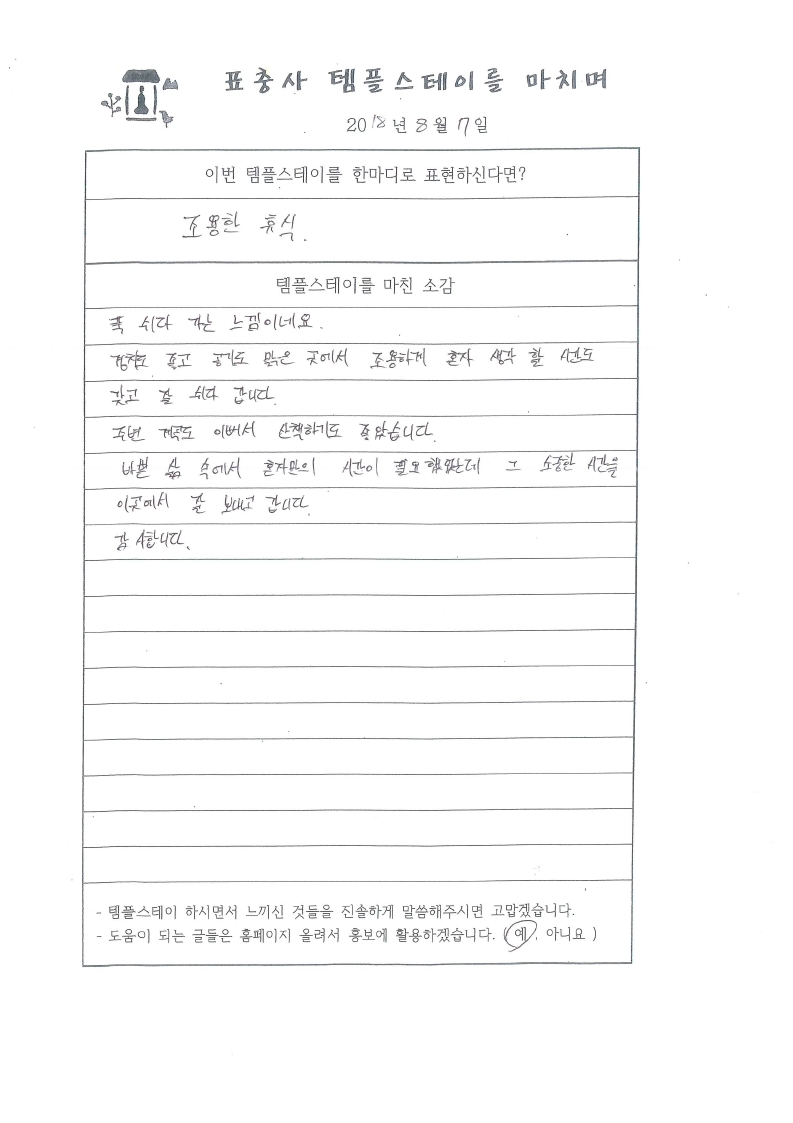 표충사 템플스테이를 마치며
2018년 8월 7일
이번 템플스테이를 한마디로 표현하신다면?
조용한 휴식.
템플스테이를 마친 소감
푹 쉬다 가는 느낌이네요.
경치도 좋고 공기도 맑은 곳에서 조용하게 혼자 생각 할 시간도
갖고 잘 쉬다 갑니다.
주변 계곡도 이뻐서 산책하기도 좋았습니다.
바쁜 삶 속에서 혼자만의 시간이 필요했었는데 그 소중한 시간을
이곳에서 잘 보내고 갑니다.
감사합니다.
- 템플스테이 하시면서 느끼신 것들을 진솔하게 말씀해주시면 고맙겠습니다.
- 도움이 되는 글들은 홈페이지 올려서 홍보에 활용하겠습니다. ( 예 , 아니요 )